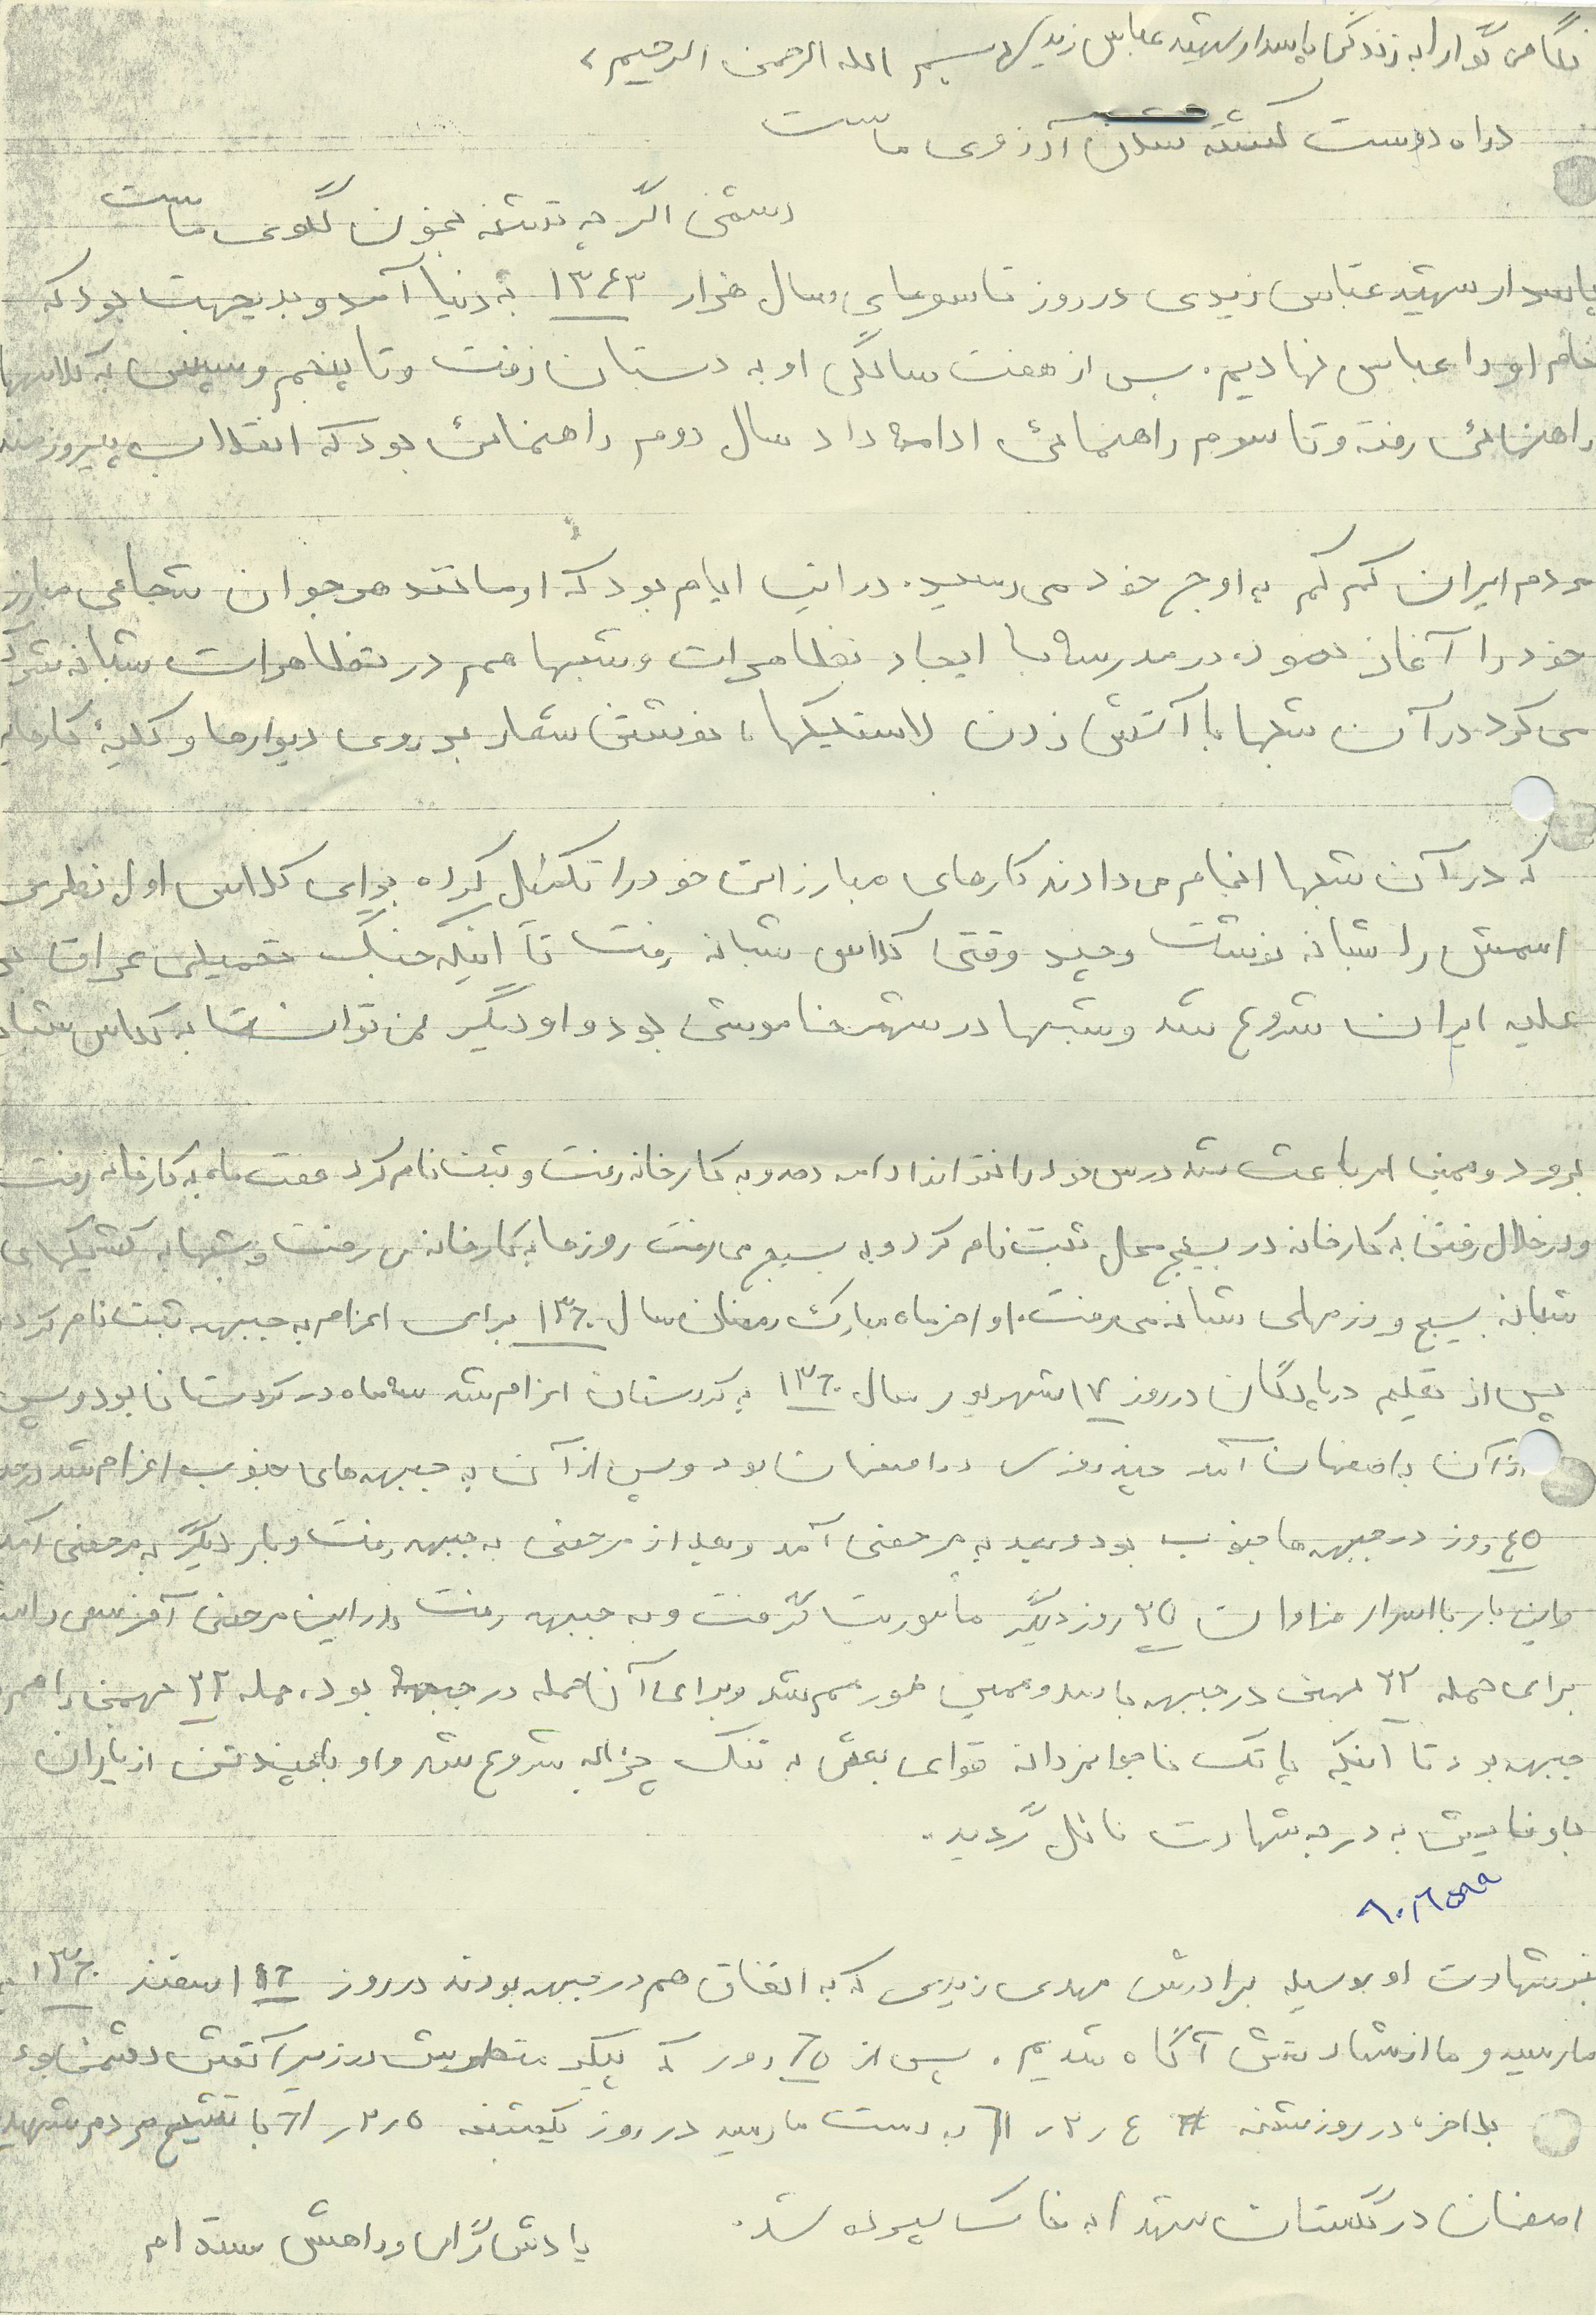 نگاهی گذرا به زندگی پاسدار شهید عباس زیدی بسم الله الرحمن الرحیم
در راه دوست کشته شدن آرزوی ماست
دشمن اگر چه تشنه بخون گلوی ماست
پاسدار شهید عباس زیدی در روز تاسوعای سال هزار ۱۳۴۳ به دنیا آمد و بدیجهت بود که
نام او را عباس نهادیم. پس از هفت سالگی او به دبستان رفت و تا پنجم و سپس به کلاسها
راهنمائی رفته و تا سوم راهنمائی ادامه داد سال دوم راهنمائی بود که انقلاب پیروزمند
مردم ایران کم کم به اوج خود می رسید. در این ایام بود که او مانند هر جوان شجاعی مبارز
خود را آغاز نمود، در مدرسه با ایجاد تظاهرات و شبها هم در تظاهرات شبانه شرک
می کرد در آن شبها با آتش زدن لاستیکها، نوشتن شعار بر روی دیوارها و کلیهٔ کارهای
که در آن شبها انجام می دادند کارهای مبارزاتی خود را تشکیل کرده برای کلاس اول نظری
اسمش را شبانه نوشت و چند وقتی کلاس شبانه رفت تا اینکه جنگ تحمیلی عراق
علیه ایران شروع شد و شبها در شهر خاموشی بود و او دیگر نمی توانست به کلاس شبا
برود و همین امر باعث شد درس خود را نتواند ادامه دهد و به کارخانه رفت و ثبت نام کرد هفت ماه به کارخانه رفت
و در خلال رفتن به کارخانه در بسیج محل ثبت نام کرد و به بسیج می رفت روزها به کارخانه می رفت و شبها به کشیکهای
شبانه بسیج و رزمهای شبانه می رفت. اواخر ماه مبارک رمضان سال ۱۳۶۰ برای اعزام به جبهه ثبت نام کرد
پس از تعلیم در پادگان در روز ۱۷ شهریور سال ۱۳۶۰ به کردستان اعزام شد سه ماه در کردستان بود و پس
از آن به اصفهان آمد چند روزی در اصفهان بود و پس از آن به جبهه های جنوب اعزام شد
۴۵ روز در جبهه ها جنوب بود و بعد به مرخصی آمد و بعد از مرخصی به جبهه رفت و بار دیگر به مرخصی آمد
و این بار با اسرار فراوان ۳۵ روز دیگر مأموریت گرفت و به جبهه رفت و در این مرخصی آخر سعی داشت
برای حمله ۲۲ بهمن در جبهه باشد و همین طور هم شد و برای آن حمله در جبهه بود. حمله ۲۲ بهمن را هم
جبهه بود تا اینکه پاتک ناجوانمردانه قوای بعثی به تنگ چزابه شروع شد و او با چند تن از یاران
باوفایش به درجه شهادت نائل گردید.
خبر شهادت او بوسیله برادرش مهدی زیدی که به اتفاق هم در جبهه بودند در روز ۱۶ اسفند ۱۳۶۰
ما رسید و ما از شهادتش آگاه شدیم. پس از ۶۵ روز که پیکر مطهرش در زیر آتش دشمن بود
بلاخره در روز شنبه ۴ ر ۲ ر ۶۱ به دست ما رسید در روز یکشنبه ۵ ر ۲ ر ۶۱ با تشییع مردم شهید
اصفهان در گلستان شهدا به خاک سپرده شد.
یادش گرامی و راهش مستدام